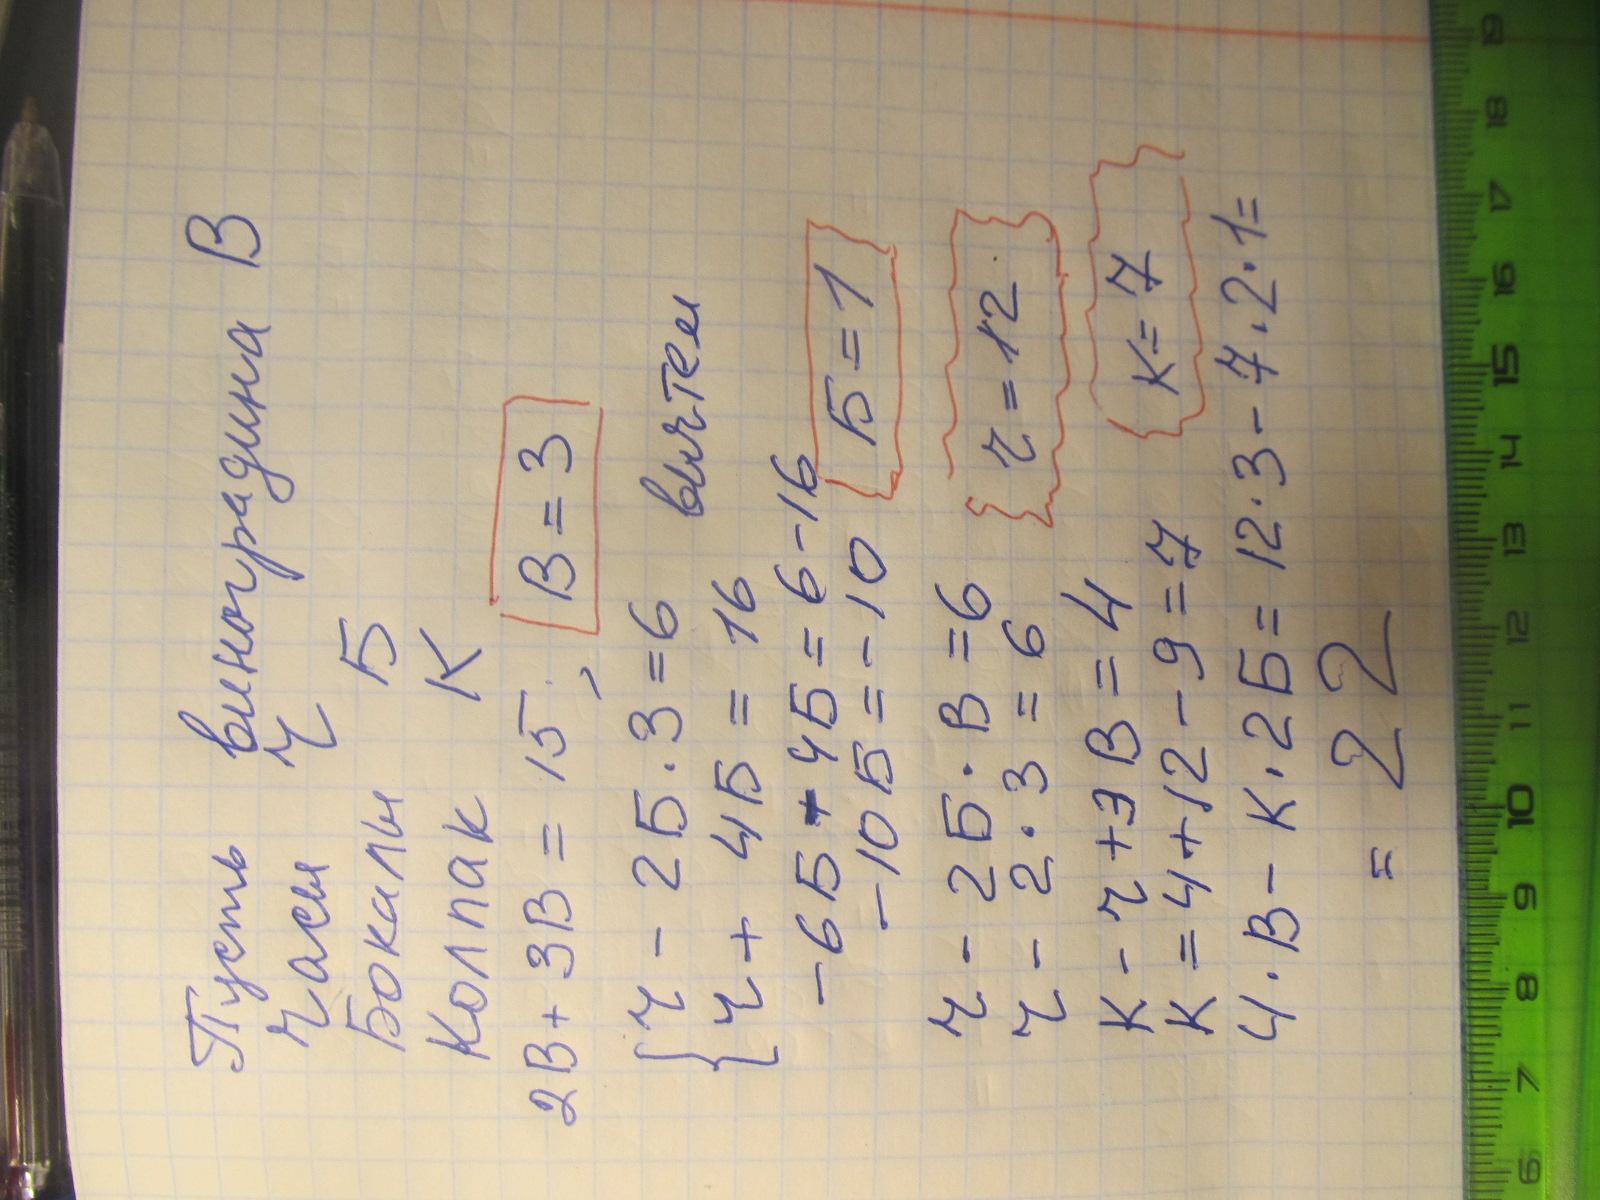 Пусть виноградина В
Часы Ч
Бокалы Б
Колпак К
2В + 3В = 15, В = 3
Ч - 2Б·3 = 6 вычтем
Ч + 4Б = 16
-6Б - 4Б = 6 - 16
-10Б = -10 Б = 1
Ч - 2Б·В = 6
Ч - 2·3 = 6 Ч = 12
К - Ч + 3В = 4
К = 4 + 12 - 9 = 7 К = 7
Ч·В - К·2Б = 12·3 - 7·2·1 =
= 22
6 7 8 9 10 11 12 13 14 15 16 17 18 19